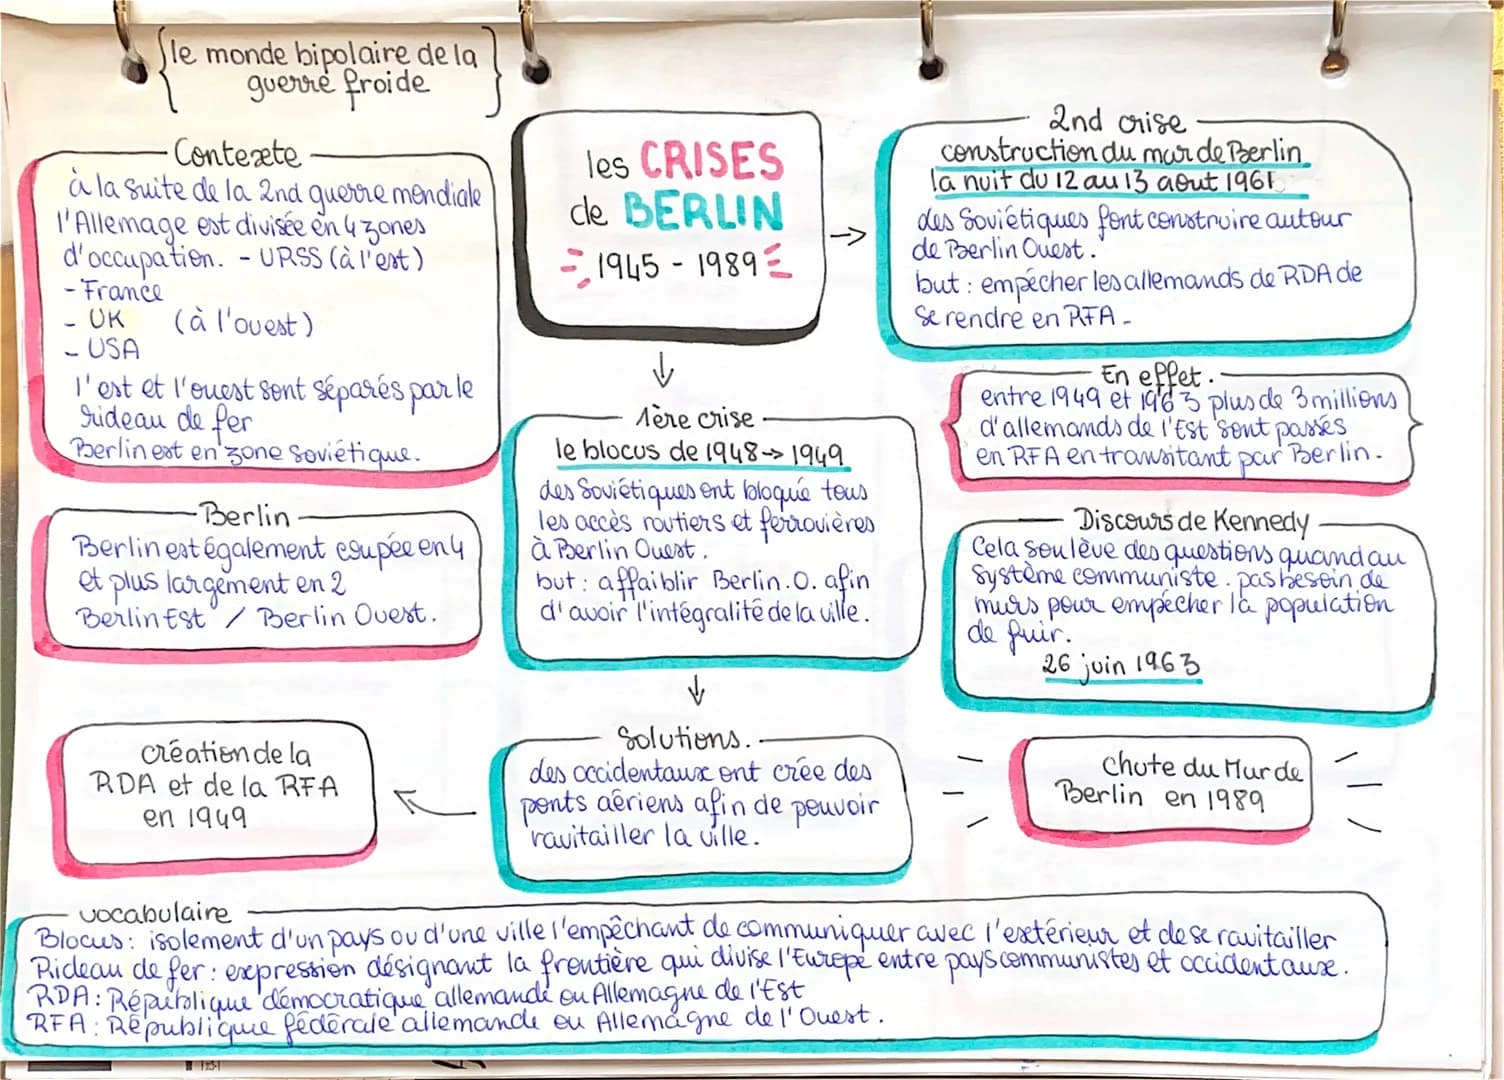 le monde bipolaire de la
guerre froide
les CRISES
de BERLIN
1945 - 1989
Contexte
à la suite de la 2nd guerre mondiale
l'Allemage est divisée en 4 zones
d'occupation. - URSS (à l'est)
- France
- UK (à l'ouest)
- USA
l'est et l'ouest sont séparés par le
rideau de fer
Berlin est en zone soviétique.
Berlin
Berlin est également coupée en 4
et plus largement en 2
Berlin Est / Berlin Ouest.
1ère crise
le blocus de 1948 -> 1949
des Soviétiques ont bloqué tous
les accès routiers et ferrovières
à Berlin Ouest.
but : affaiblir Berlin.O. afin
d'avoir l'intégralité de la ville.
Solutions.
des occidentaux ont crée des
ponts aériens afin de pouvoir
ravitailler la ville.
création de la
RDA et de la RFA
en 1949
2nd crise
construction du mur de Berlin
la nuit du 12 au 13 aout 1961
des Soviétiques font construire autour
de Berlin Ouest.
but : empécher les allemands de RDA de
se rendre en RFA -
En effet.
entre 1949 et 1963 plus de 3 millions
d'allemands de l'Est sont passés
en RFA en transitant par Berlin.
Discours de Kennedy
Cela soulève des questions quand au
système communiste. pas besoin de
murs pour empécher la population
de fuir.
26 juin 1963
chute du Mur de
Berlin en 1989
vocabulaire
Blocus : isolement d'un pays ou d'une ville l'empêchant de communiquer avec l'extérieur et de se ravitailler
Rideau de fer : expression désignant la frontière qui divise l'Europe entre pays communistes et occidentaux.
RDA : République démocratique allemande ou Allemagne de l'Est
RFA : République fédérale allemande ou Allemagne de l'Ouest.